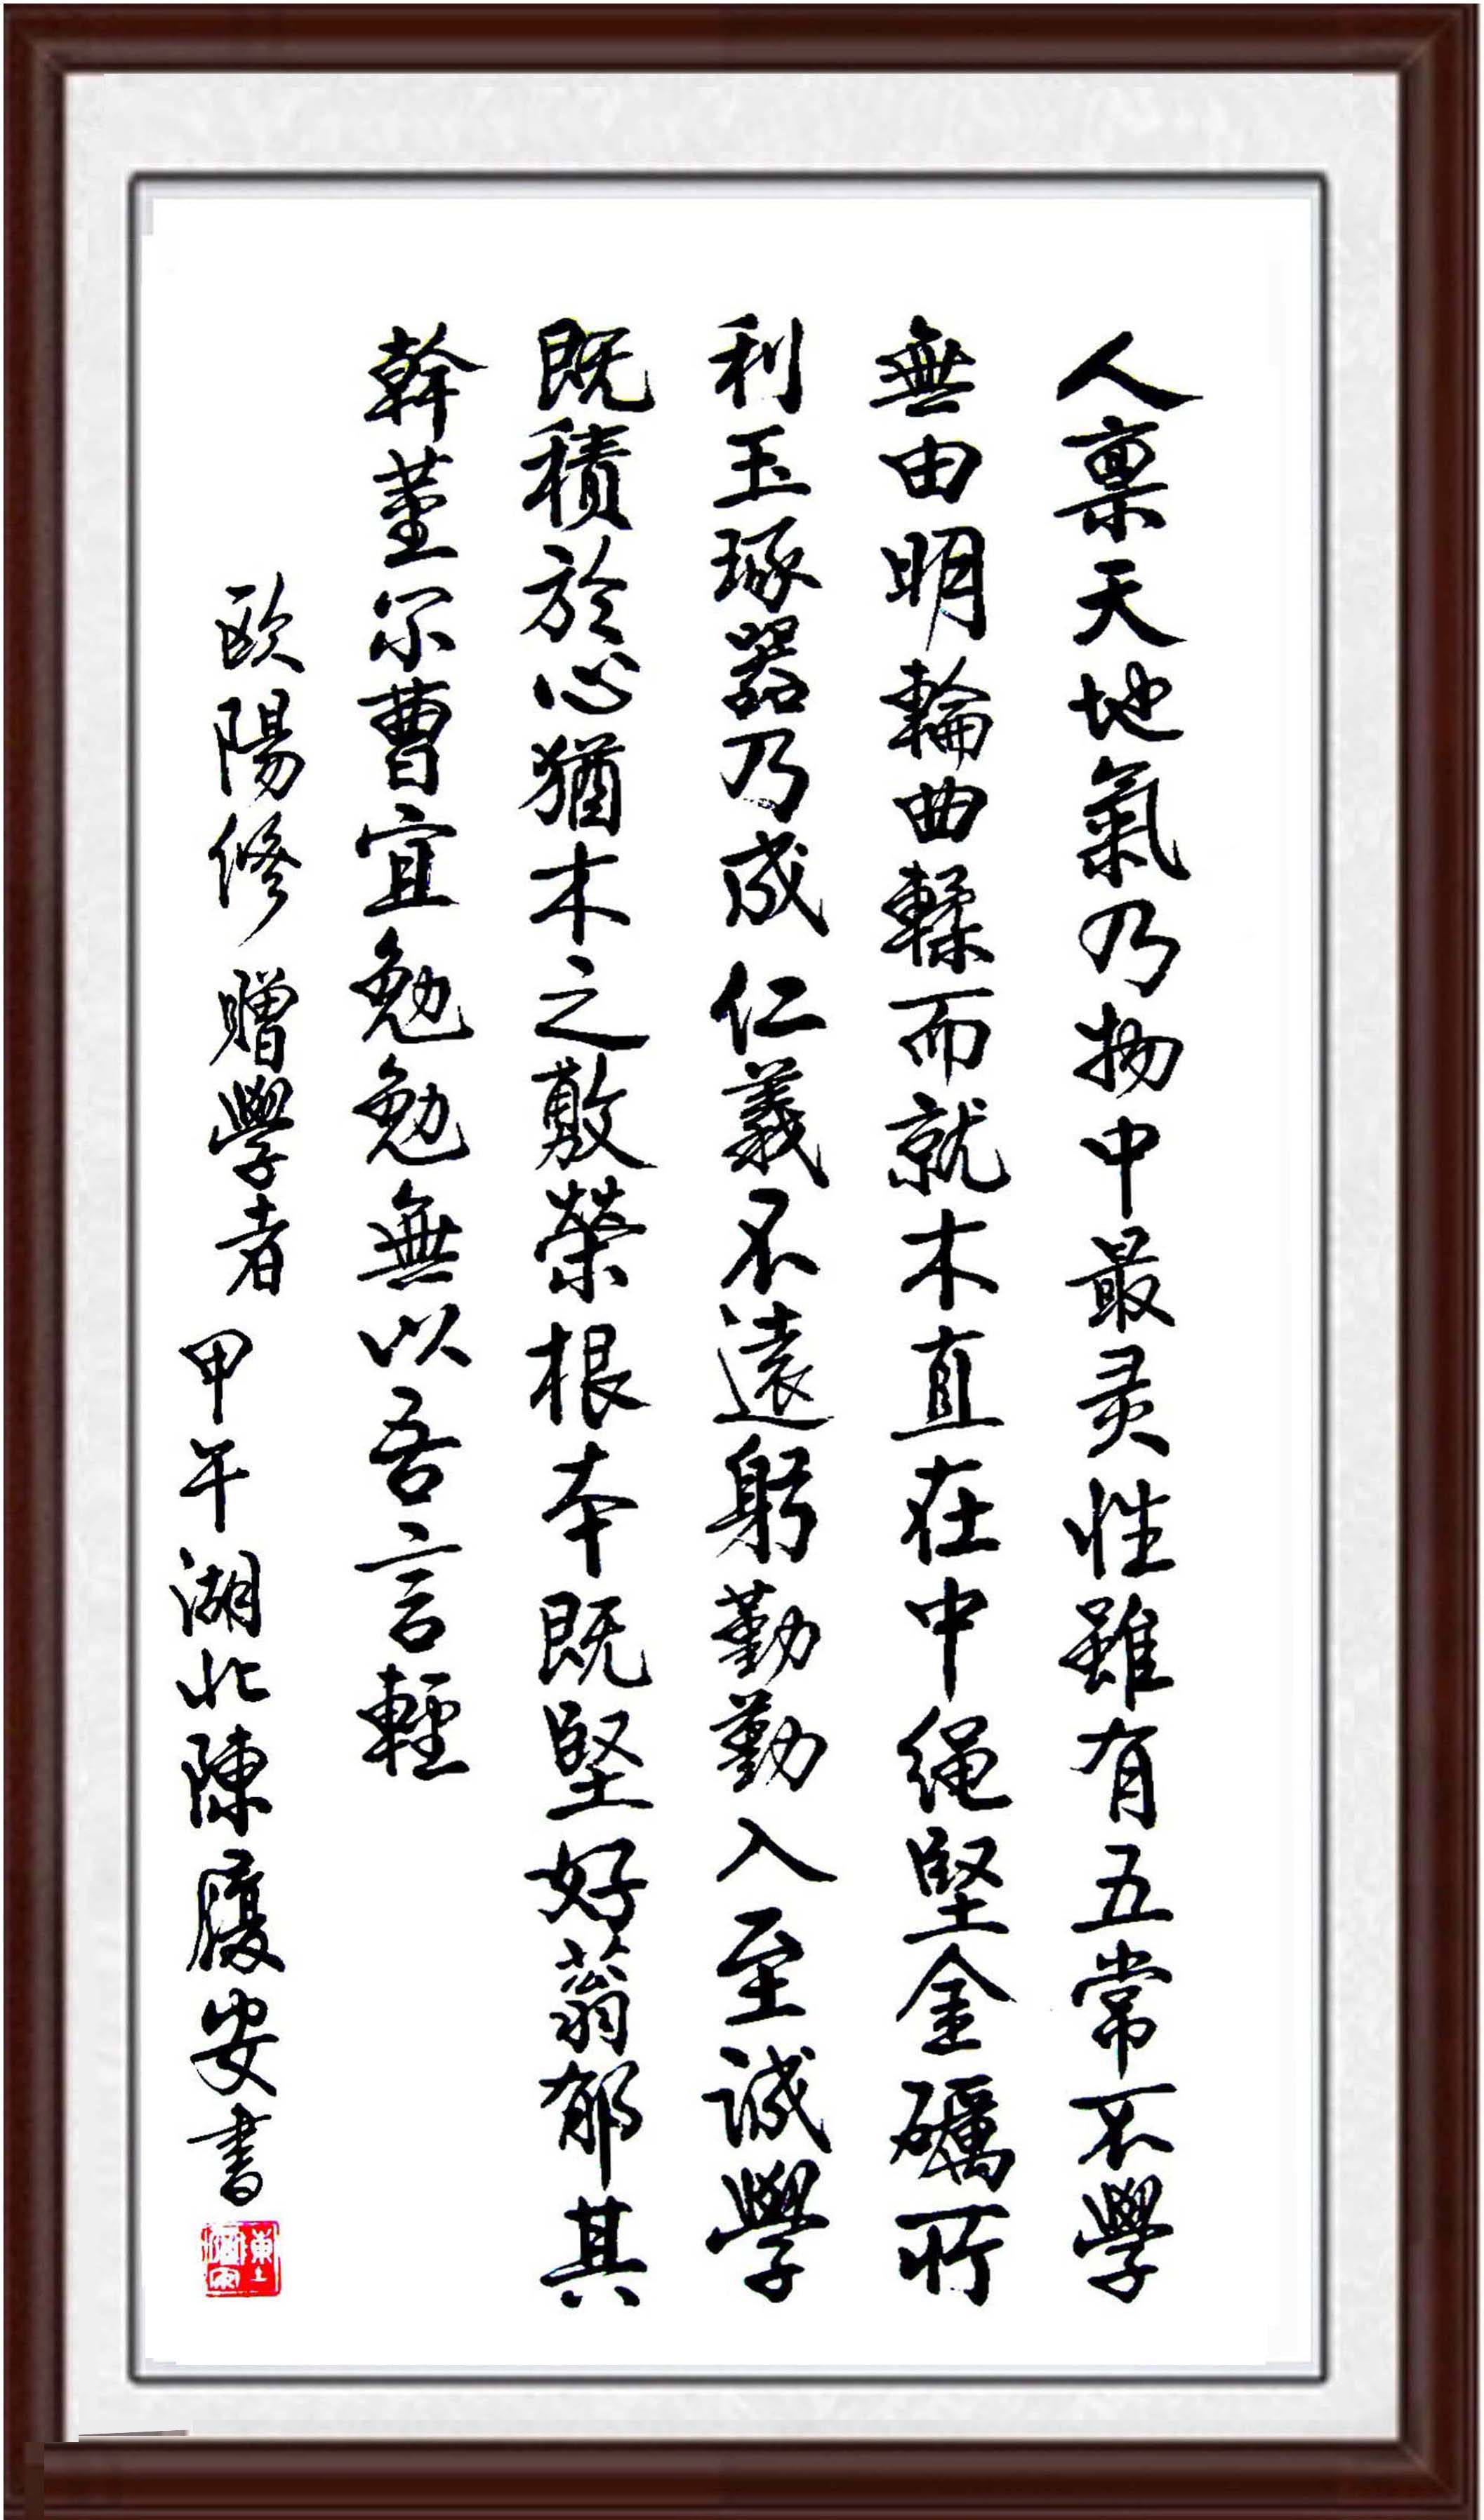 人禀天地氣乃物中最灵性雖有五常不學
無由明輪曲輮而就木直在中绳堅金礪所
利玉琢器乃成仁義不遠躬勤勤入至誠學
既積於心猶木之敷榮根本既堅好蓊郁其
幹莖尔曹宜勉勉無以吾言輕
歐陽修贈學者
甲午湖北陳履安書